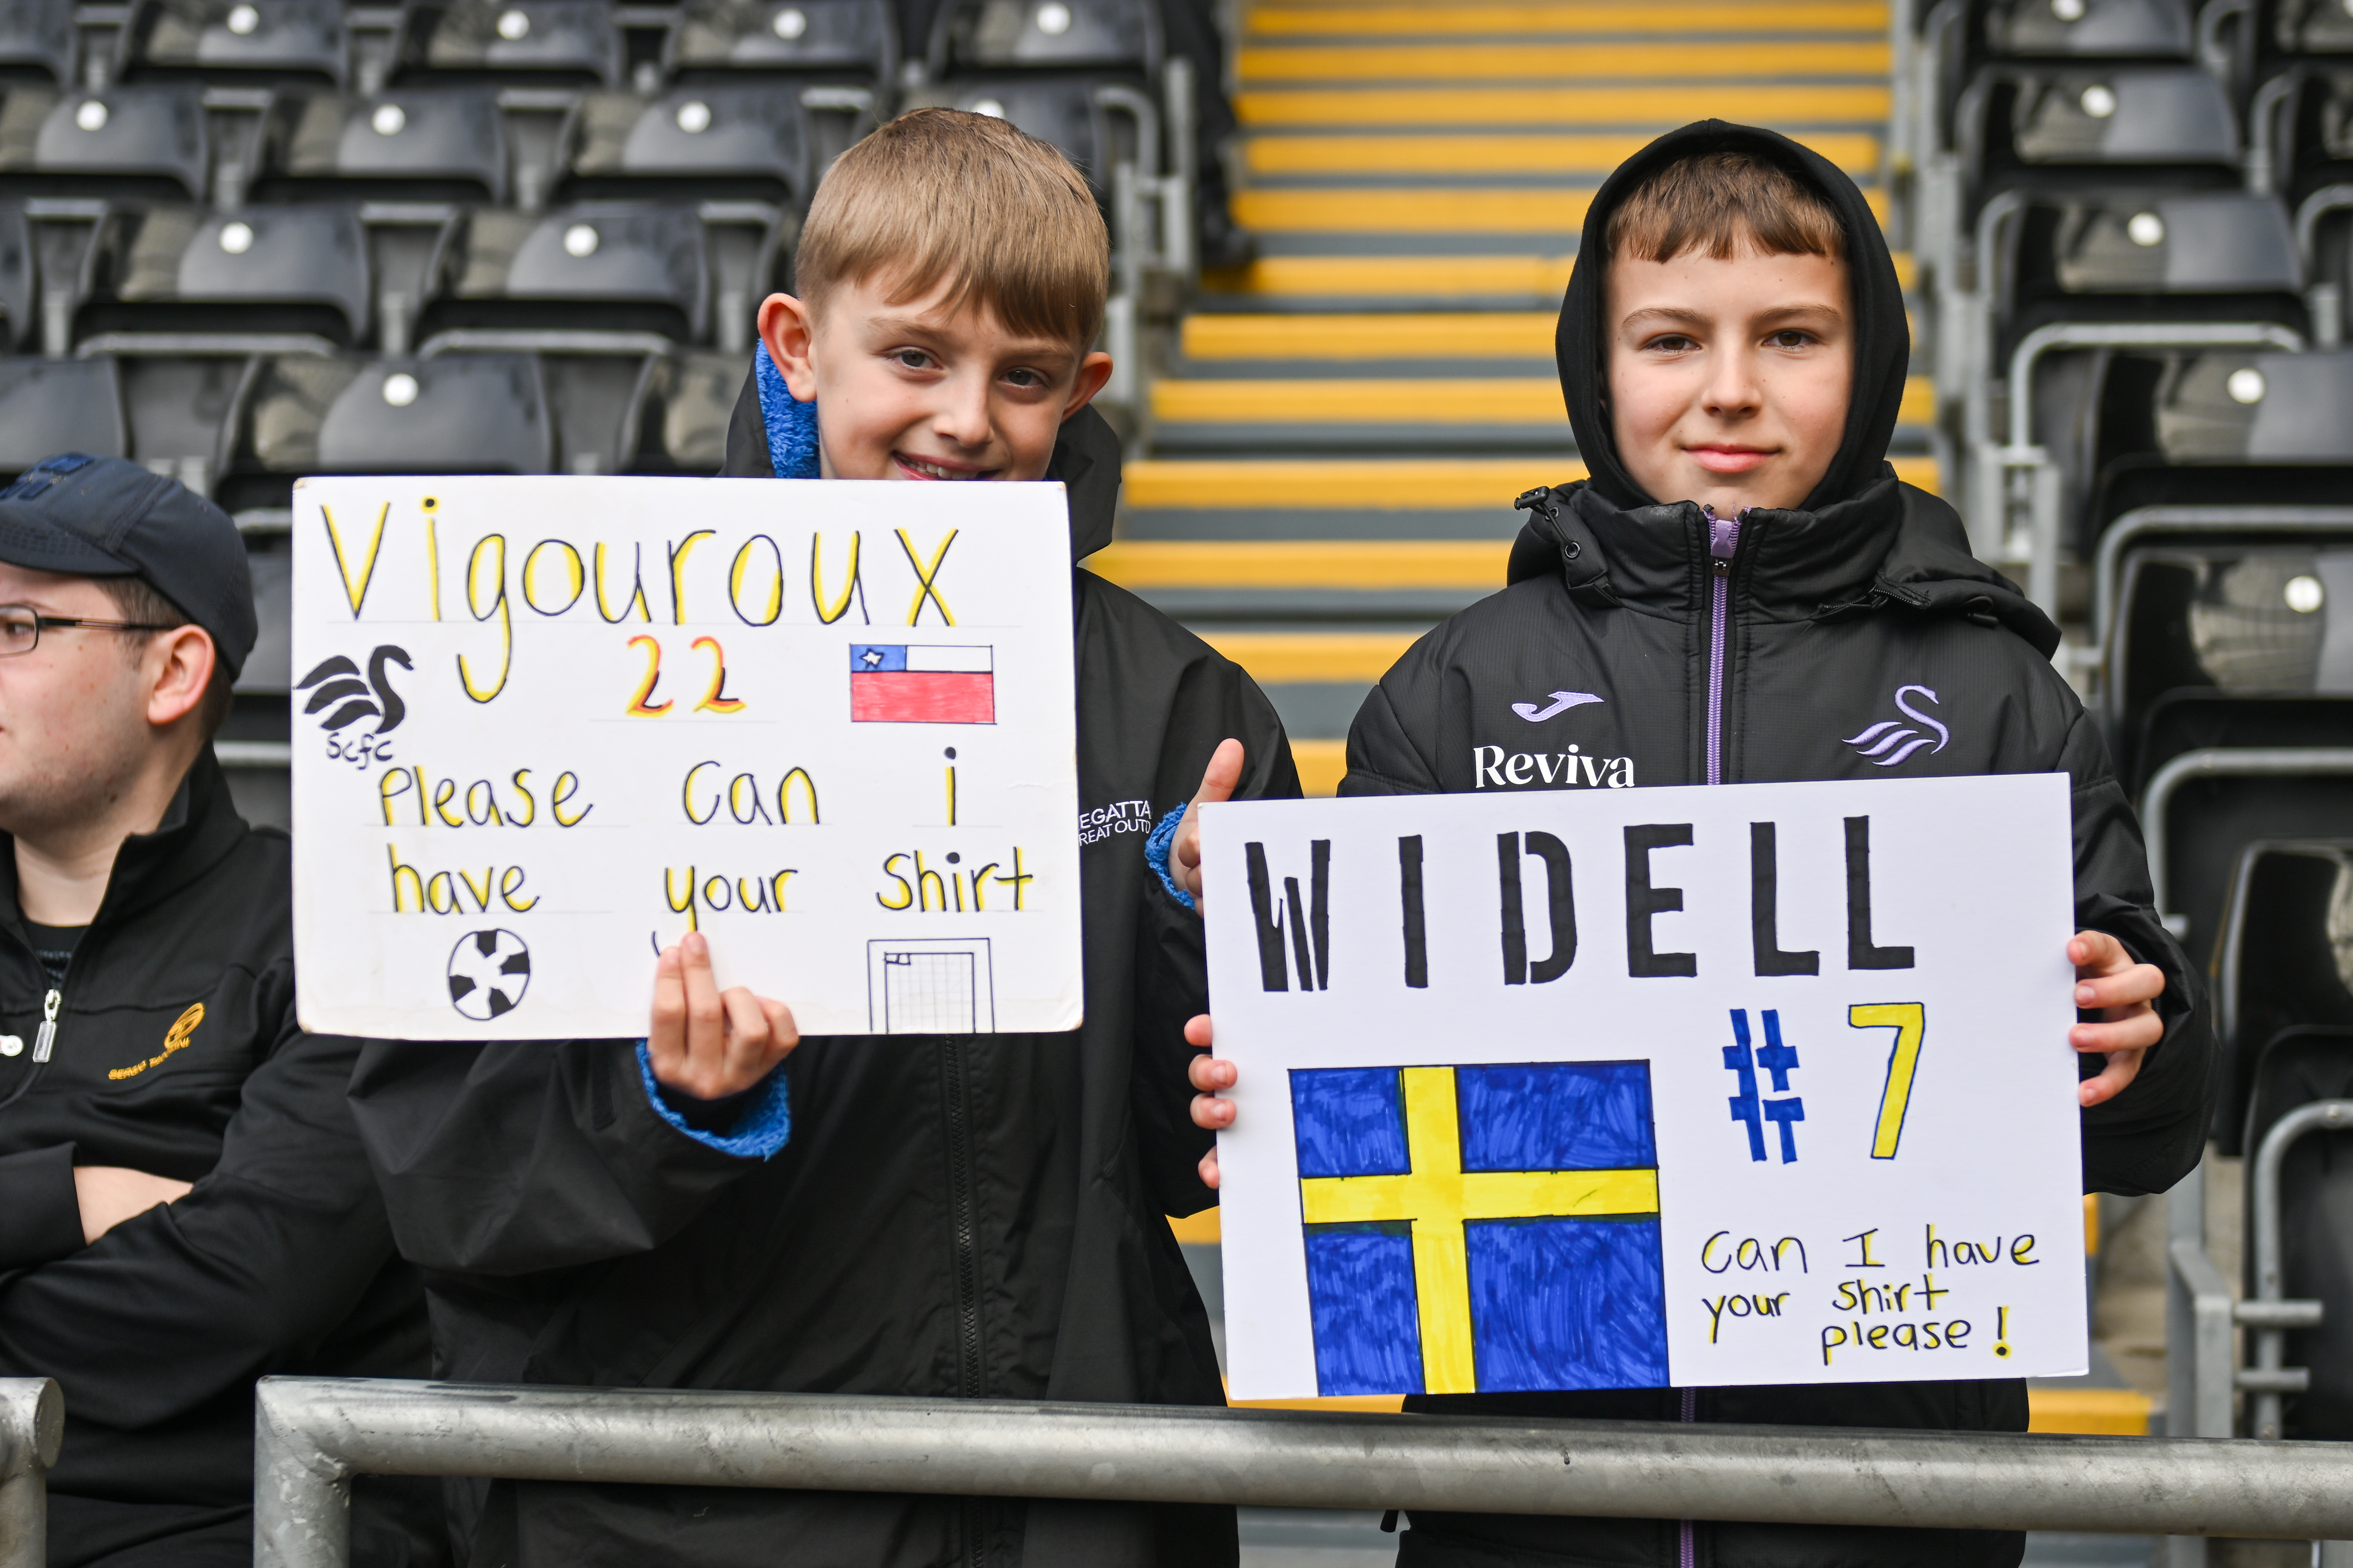 Vigouroux
22
Scfc
Please can i
have your shirt
EGATTA
REAT OUTD
Reviva
WIDELL
# 7
Can I have
your shirt
please!